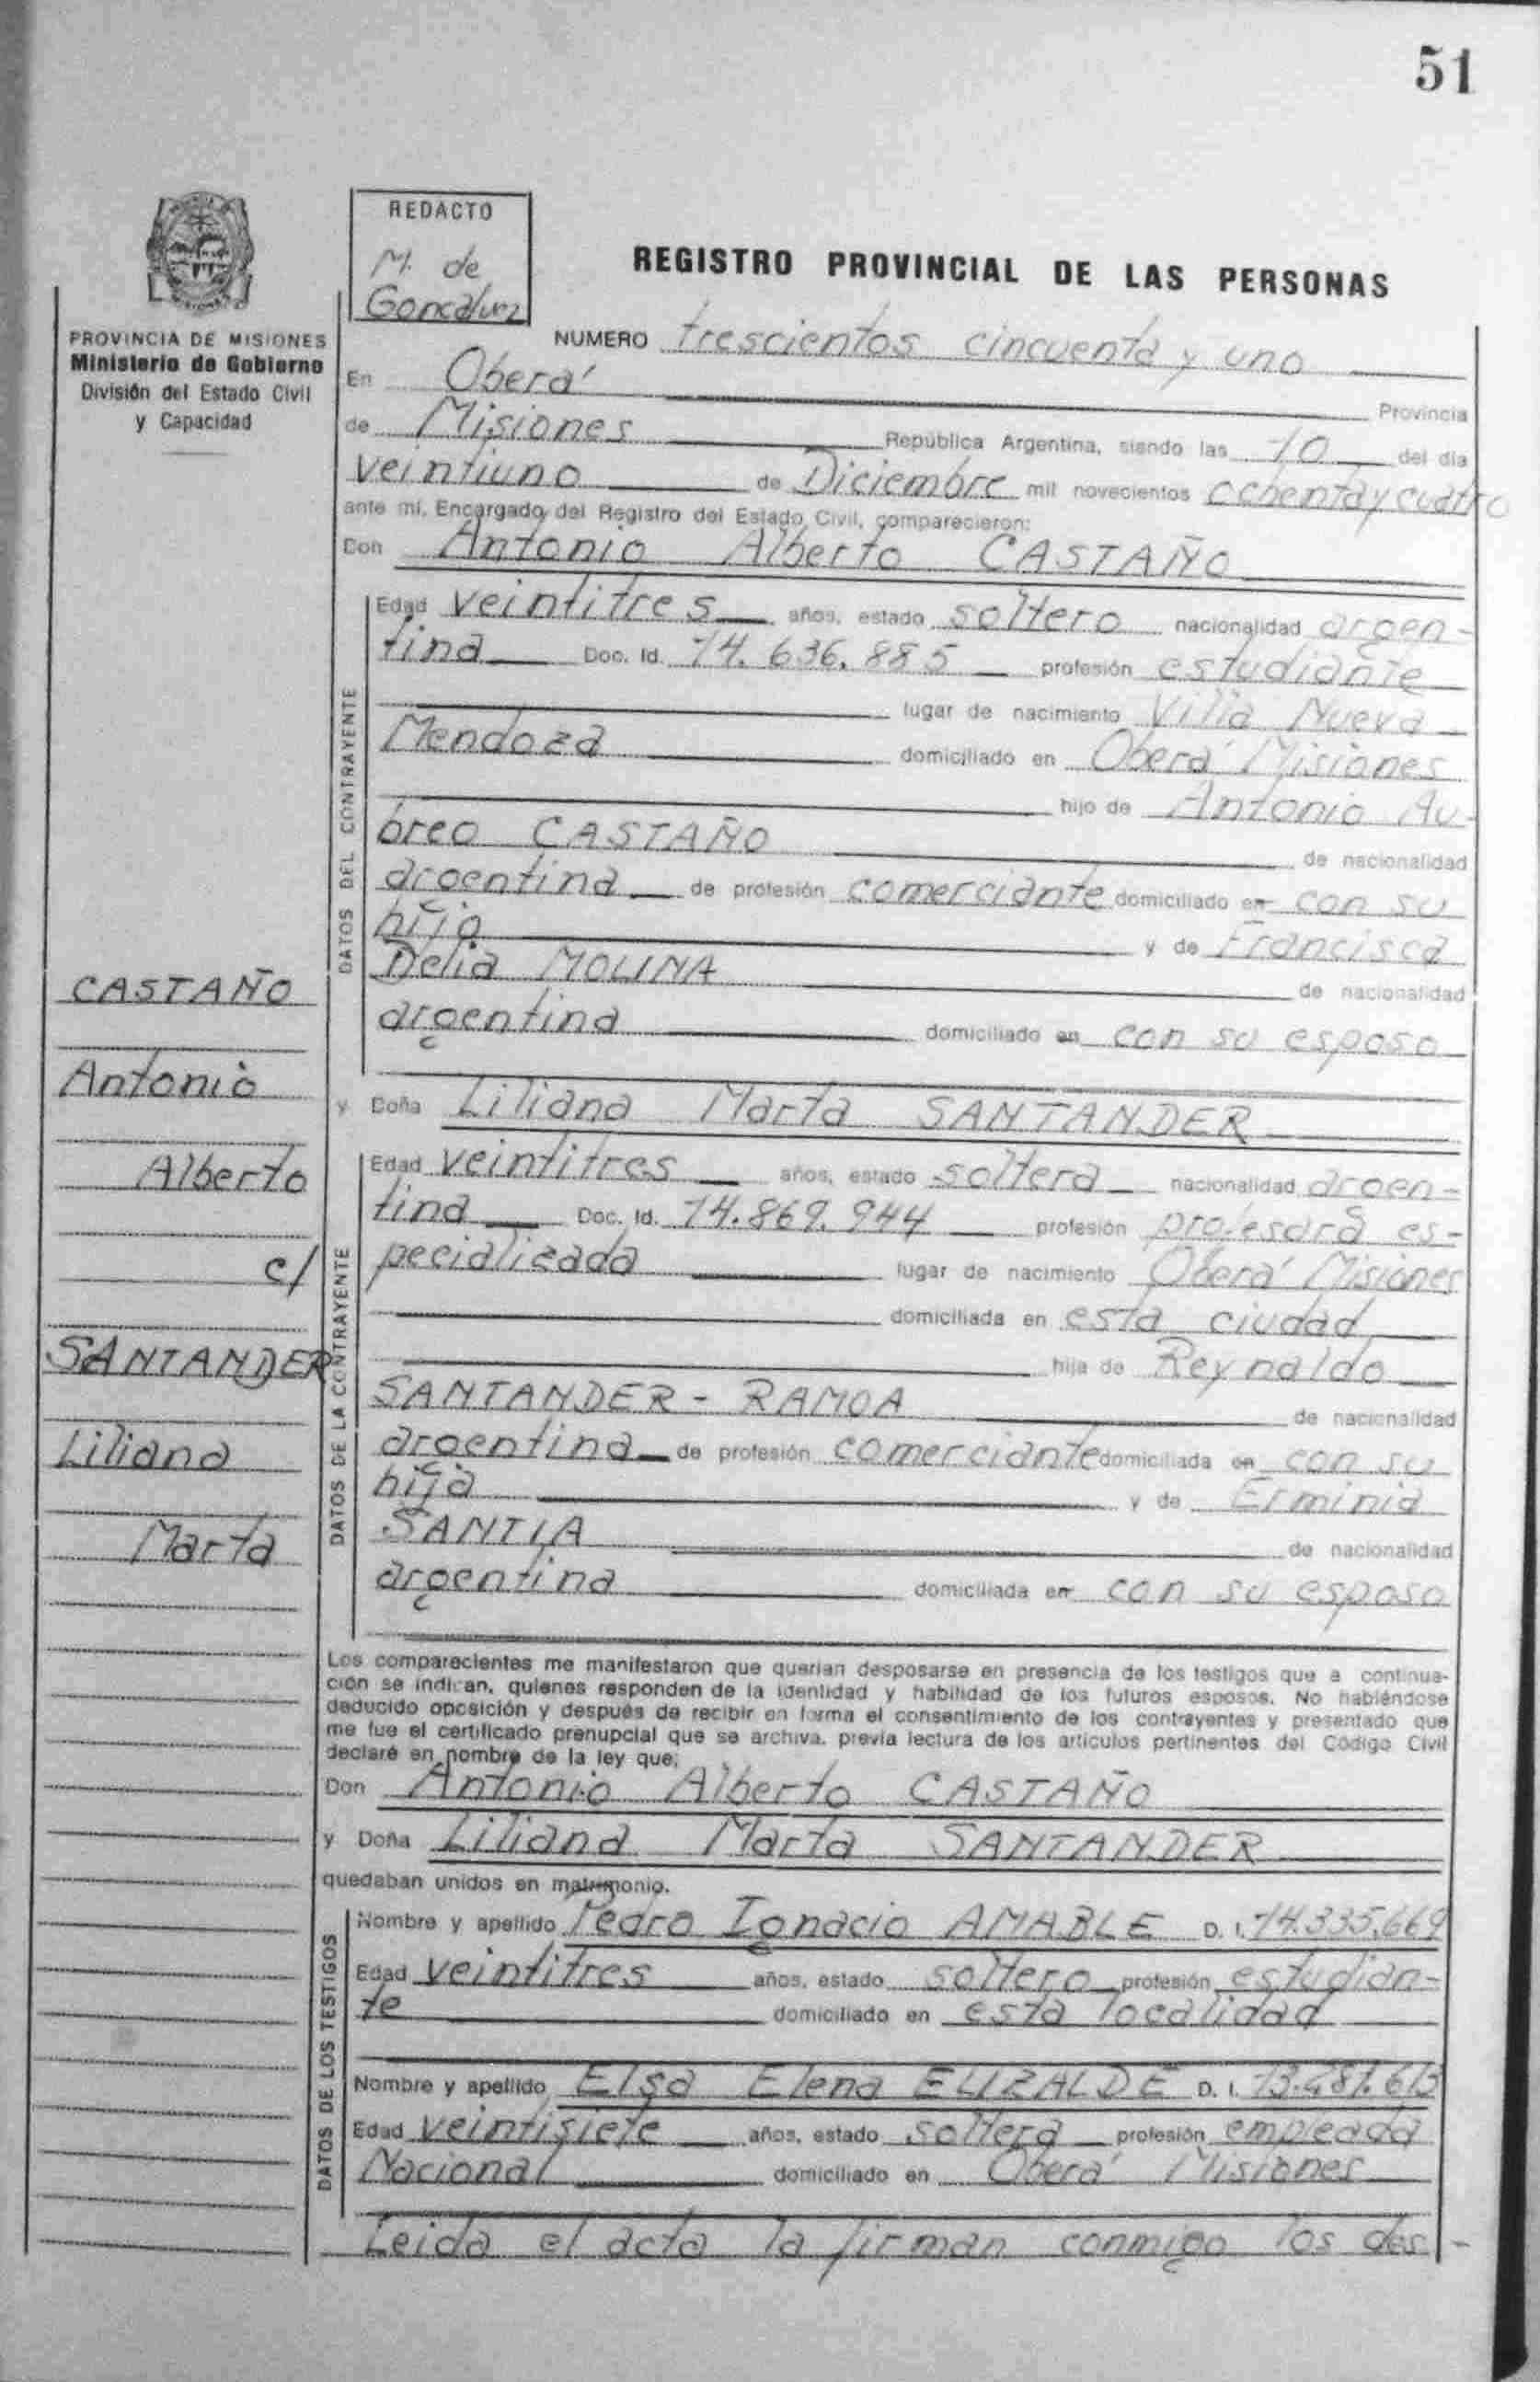 51
REDACTO
M. de
REGISTRO PROVINCIAL DE LAS PERSONAS
PROVINCIA DE MISIONES
Ministerio de Gobierno
División del Estado Civil
y Capacidad
NUMERO trescientos cincuenta y uno
En Oberá Provincia
de Misiones República Argentina, siendo las 10 del día
veintiuno de Diciembre mil novecientos ochenta y cuatro
ante mí, Encargado del Registro del Estado Civil, comparecieron:
Don Antonio Alberto CASTAÑO
DATOS DEL CONTRAYENTE
Edad veintitres años, estado soltero nacionalidad argen-
tina Doc. Id. 14.636.885 profesión estudiante
lugar de nacimiento Villa Nueva
Mendoza domiciliado en Oberá Misiones
hijo de Antonio Au-
breo CASTAÑO de nacionalidad
argentina de profesión comerciante domiciliado en con su
hijo y de Francisca
Delia MOLINA de nacionalidad
argentina domiciliado en con su esposo
y Doña Liliana Marta SANTANDER
DATOS DE LA CONTRAYENTE
Edad veintitres años, estado soltera nacionalidad argen-
tina Doc. Id. 14.869.944 profesión profesora es-
pecializada lugar de nacimiento Oberá Misiones
domiciliada en esta ciudad
hija de Reynaldo
SANTANDER - RAMOA de nacionalidad
argentina de profesión comerciante domiciliada en con su
hija y de Erminia
SANTIA de nacionalidad
argentina domiciliada en con su esposo
CASTAÑO
Antonio
Alberto
c/
SANTANDER
Liliana
Marta
Los comparecientes me manifestaron que querían desposarse en presencia de los testigos que a continua-
ción se indican, quienes responden de la identidad y habilidad de los futuros esposos. No habiéndose
deducido oposición y después de recibir en forma el consentimiento de los contrayentes y presentado que
me fue el certificado prenupcial que se archiva, previa lectura de los artículos pertinentes del Código Civil
declaré en nombre de la ley que:
Don Antonio Alberto CASTAÑO
y Doña Liliana Marta SANTANDER
quedaban unidos en matrimonio.
DATOS DE LOS TESTIGOS
Nombre y apellido Pedro Ignacio AMABLE D. I. 14.335.669
Edad veintitres años, estado soltero profesión estudian-
te domiciliado en esta localidad
Nombre y apellido Elsa Elena ELIZALDE D. I.
Edad veintisiete años, estado soltera profesión empleada
Nacional domiciliado en Oberá Misiones
Leida el acta la firman conmigo los des-